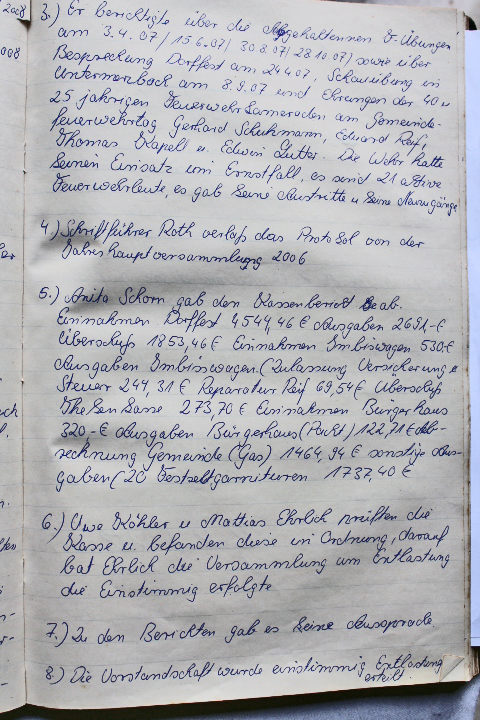 2008
008
3.) Er berichtigte über die Abgehaltennen F-Übungen
am 3.4.07/ 15.6.07/ 30.8.07/ 28.10.07) sowie über
Besprechung Dorffest am 24.4.07, Schauübung in
Untermerzbach am 8.9.07 und Ehrungen der 40 u
25 jahrigen Feuerwehrkameraden am Gemeinde-
feuerwehrtag Gerhard Schuhmann, Eduard Reif,
Thomas Kapell u. Edwin Lutter. Die Wehr hatte
keinen Einsatz im Ernstfall, es sind 21 aktive
Feuerwehrleute, es gab keine Austritte u keine Neuzugänge
4.) Schriftführer Roth verlaß das Protokol von der
Jahreshauptversammlung 2006
5.) Anita Schorn gab den Kassenbericht ab.
Einnahmen Dorffest 4544,46 € Ausgaben 2691.-€
Überschuß 1853,46 € Einnahmen Imbisswagen 530-€
Ausgaben Imbisswagen (Zulassung Versicherung u
Steuer 244,31 € Reparatur Reif 69,54€ Überschuß
Thekenkasse 273,70 € Einnahmen Bürgerhaus
320.-€ Ausgaben Bürgerhaus (Pacht) 122,71 € Ab-
rechnung Gemeinde (Gas) 1464,94 € sonstige Aus-
gaben (20 Festzeltgarnituren 1737,40 €
6.) Uwe Köhler u Mattias Ehrlich prüften die
Kasse u. befanden diese in Ordnung, darauf
bat Ehrlich die Versammlung um Entlastung
die Einstimmig erfolgte
7.) Zu den Berichten gab es keine Aussprache.
8.) Die Vorstandschaft wurde einstimmig Entlastung
erteilt